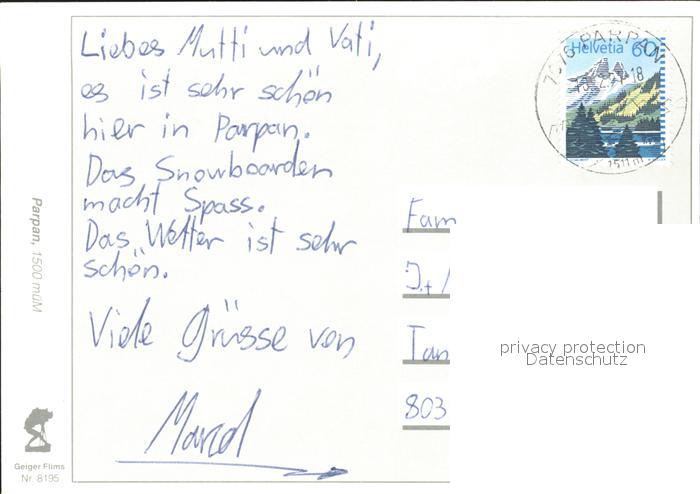 Liebes Mutti und Vati,
es ist sehr schön
hier in Parpan.
Das Snowboarden
macht Spass.
Das Wetter ist sehr
schön.
Viele Grüsse von
Marcel
Parpan, 1500 müM
Geiger Flims
Nr. 8195
Helvetia 60
PARPAN
1511 m
Fam
J.+
Tan
803
privacy protection
Datenschutz